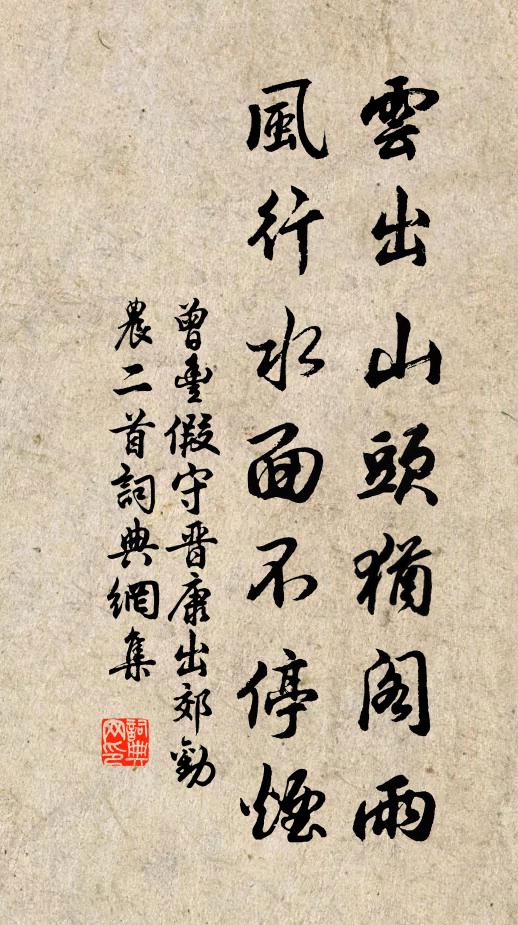 雲出山頭猶閣雨
風行水面不停煙
曾豊假守晋康出郊勸
農二首詞典網集
詞典
网印